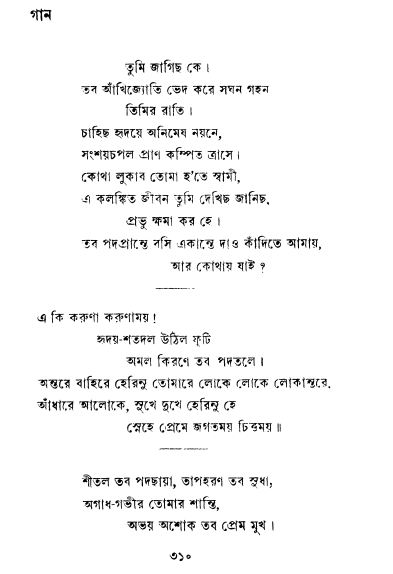 গান
তুমি জাগিছ কে।
তব আঁখিজ্যোতি ভেদ করে সঘন গহন
তিমির রাতি।
চাহিছ হৃদয়ে অনিমেষ নয়নে,
সংশয়চপল প্রাণ কম্পিত ত্রাসে।
কোথা লুকাব তোমা হ'তে স্বামী,
এ কলঙ্কিত জীবন তুমি দেখিছ জানিছ,
প্রভু ক্ষমা কর হে।
তব পদপ্রান্তে বসি একান্তে দাও কাঁদিতে আমায়,
আর কোথায় যাই ?
এ কি করুণা করুণাময়!
হৃদয়-শতদল উঠিল ফুটি
অমল কিরণে তব পদতলে।
অন্তরে বাহিরে হেরিনু তোমারে লোকে লোকে লোকান্তরে.
আঁধারে আলোকে, সুখে দুখে হেরিনু হে
স্নেহে প্রেমে জগতময় চিত্তময়॥
শীতল তব পদছায়া, তাপহরণ তব সুধা,
অগাধ-গভীর তোমার শান্তি,
অভয় অশোক তব প্রেম মুখ।
৩১০